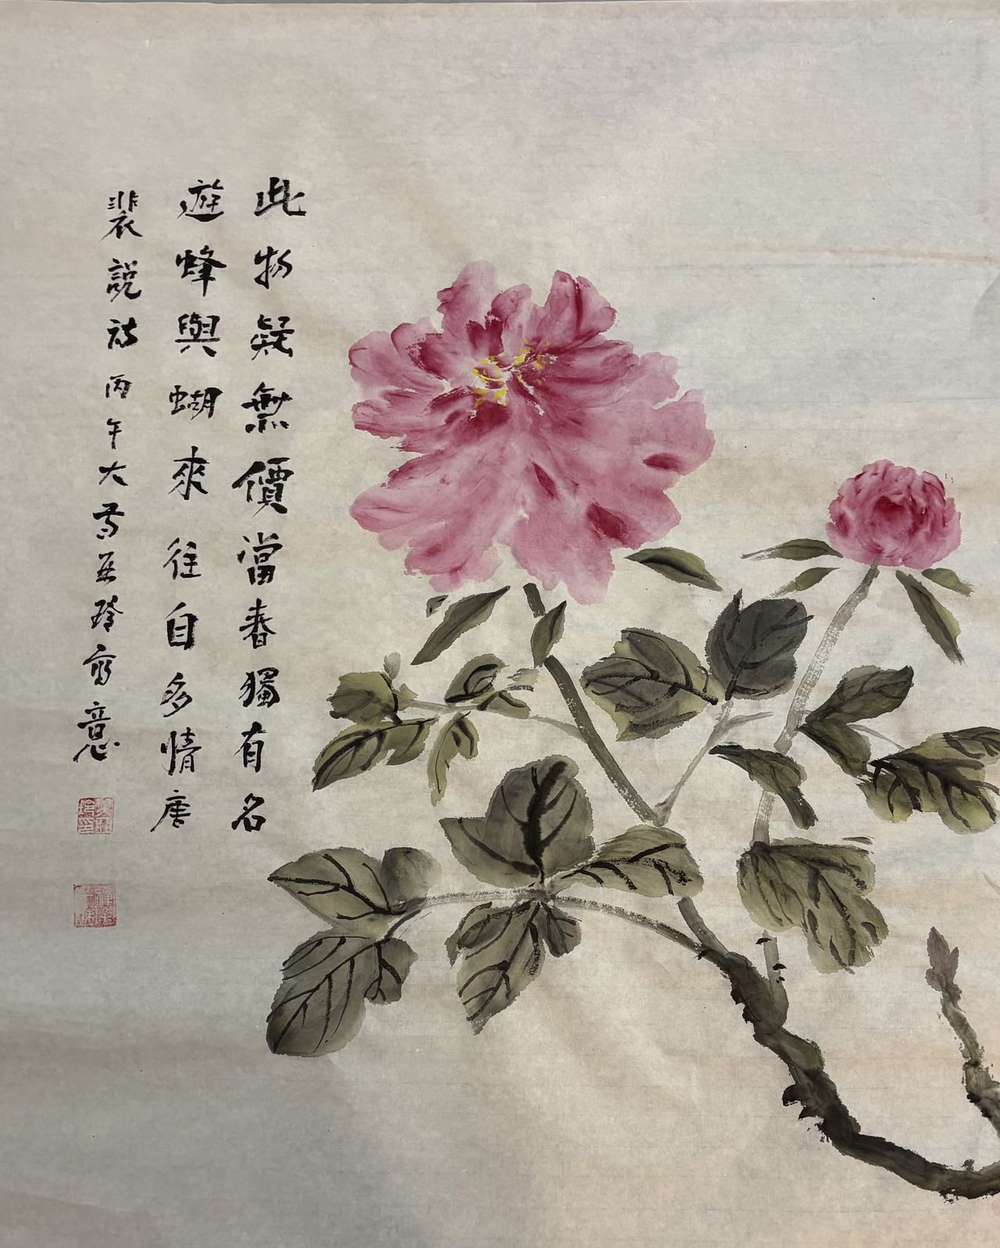 此物疑無價當春獨有名
遊蜂與蝴來往自多情唐
裴說詩丙午大寒亞玲寫意